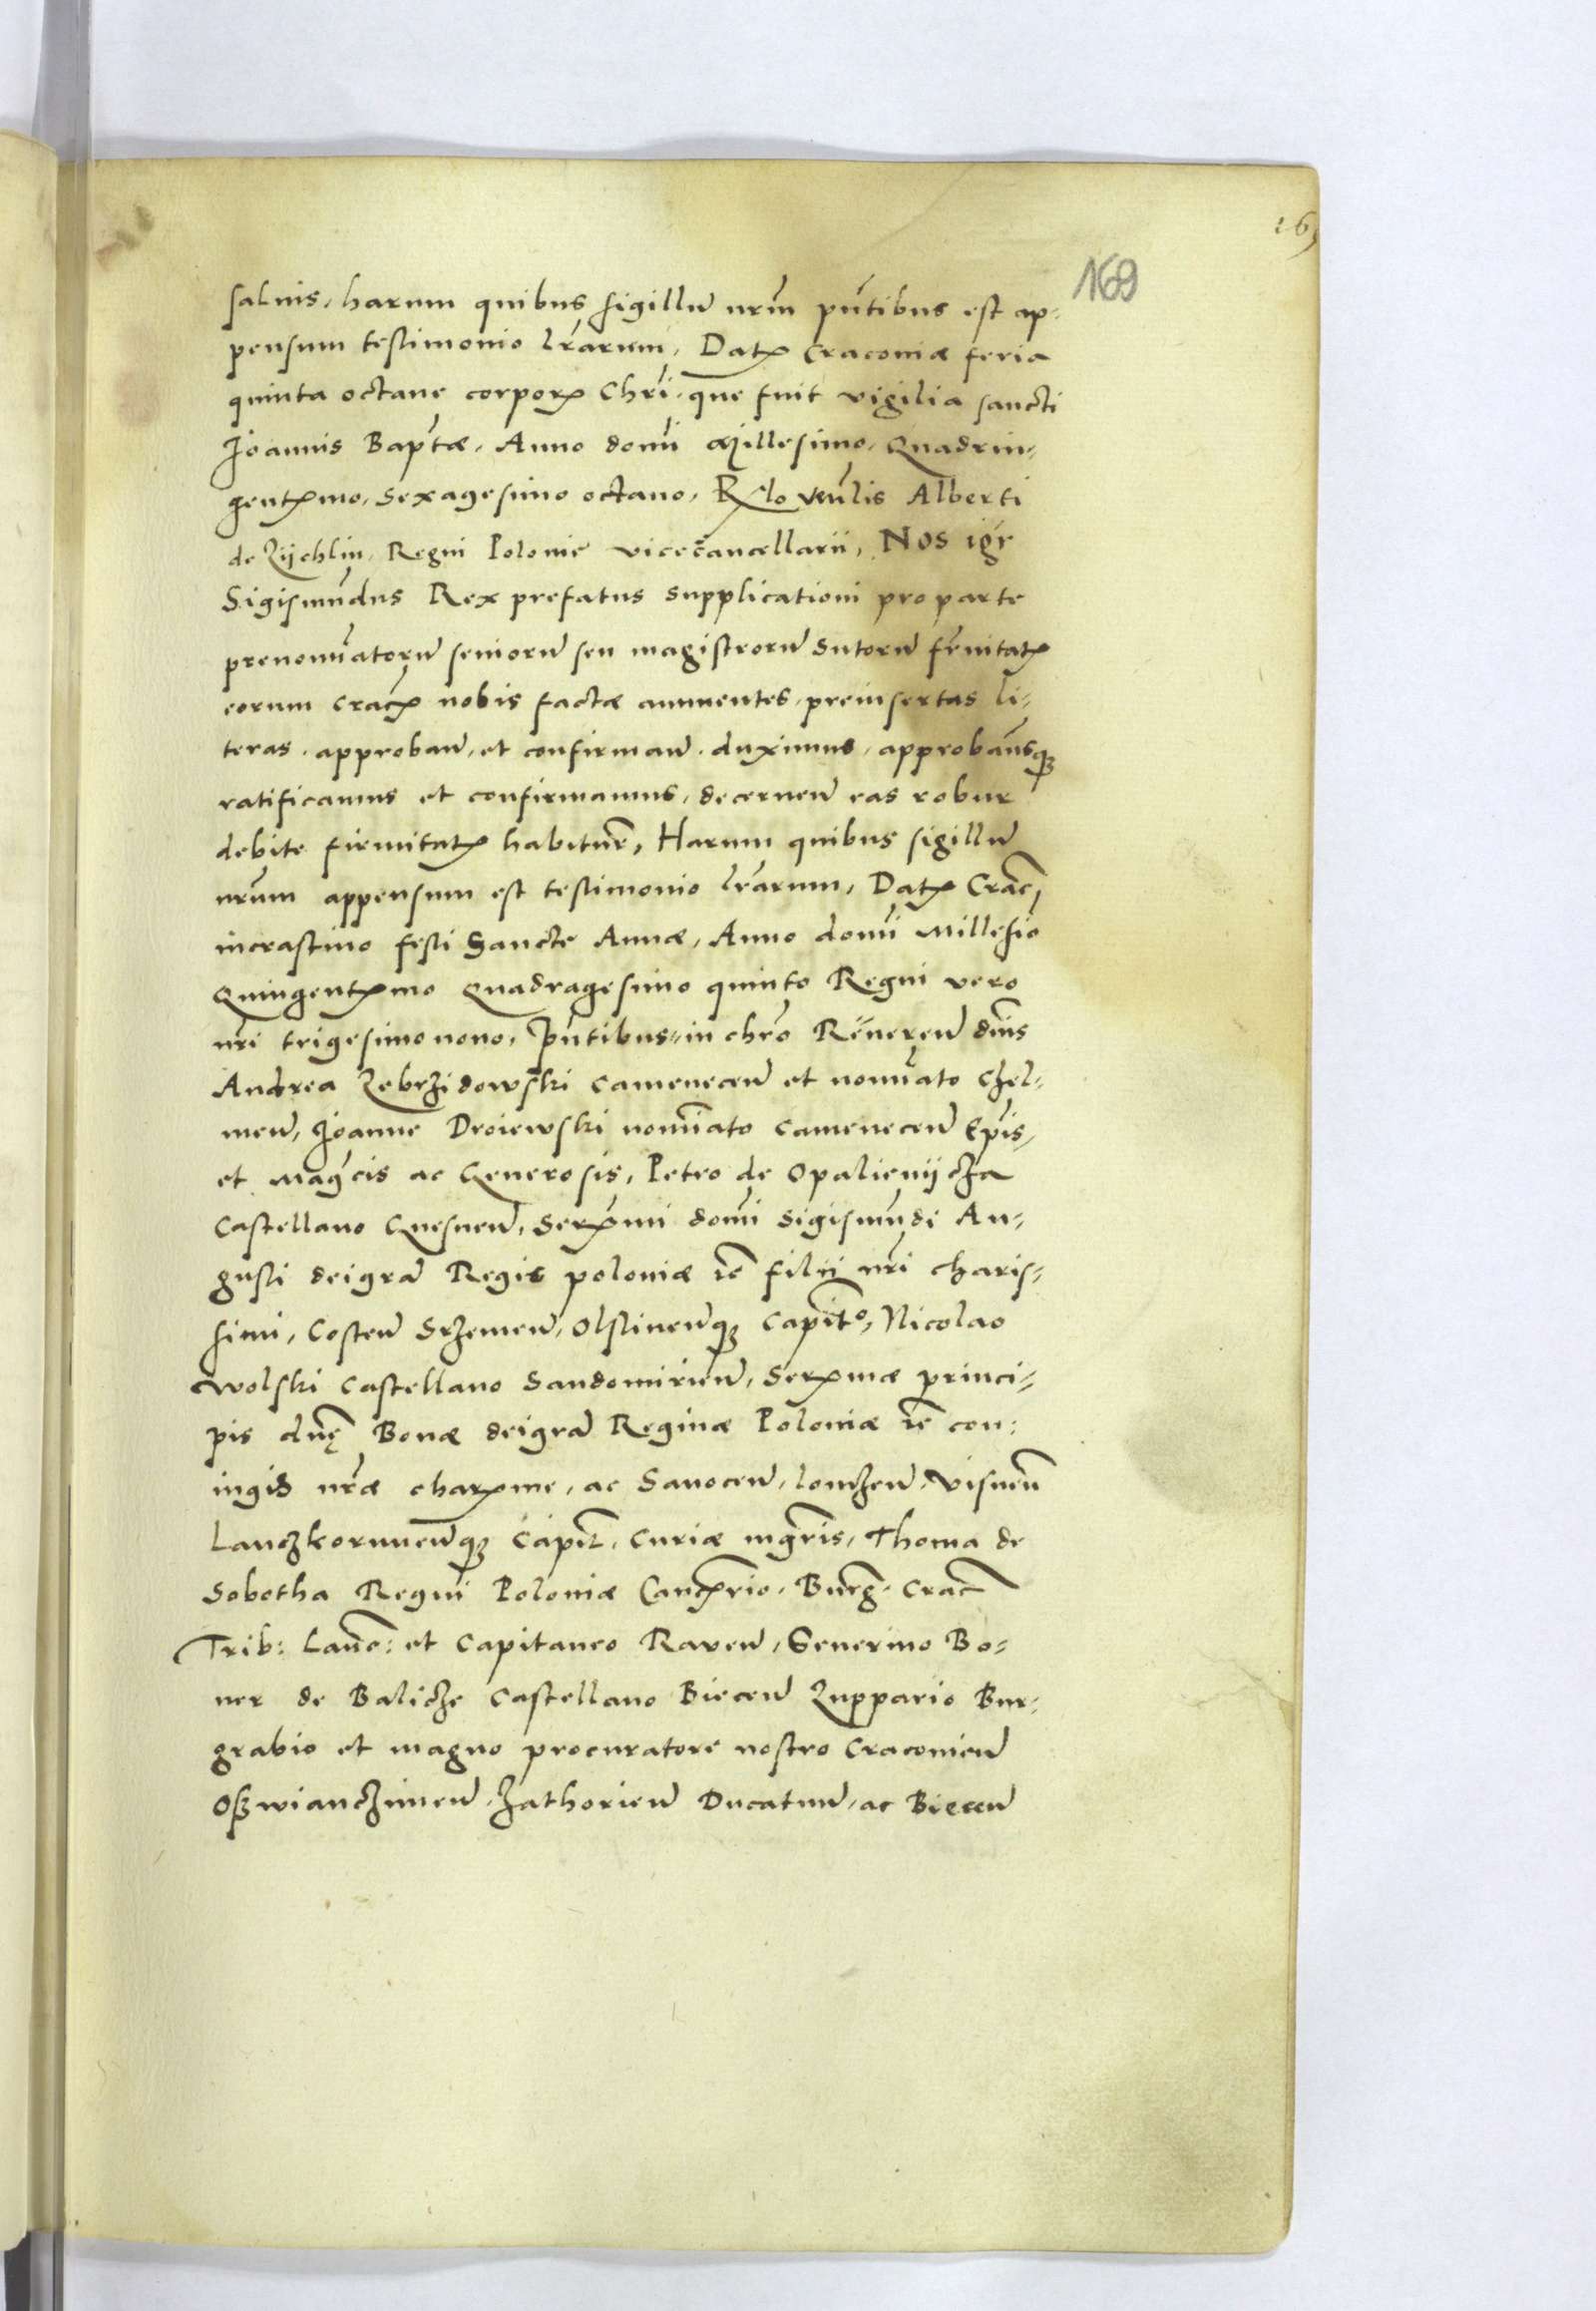 169
salvis, harum quibus sigillu nrm pntibus est ap-
pensum testimonio lrarum, Datum Cracoviæ feria
quinta octave corporis Chri, que fuit vigilia sancti
Joannis Baptæ, Anno domi Millesimo, Quadrin-
gentesimo, Sexagesimo octavo, Relo venlis Alberti
de Zijchlin, Regni Polonie vicecancellarii, Nos igr
Sigismundus Rex prefatus supplicationi pro parte
prenominatoru senioru seu magistroru Sutoru frnitatis
eorum Cracovien nobis factæ annuentes, preinsertas li-
teras, approban, et confirman, duximus, approbamusque
ratificamus et confirmamus, decernen eas robur
debite firmitatis habitur, Harum quibus sigillu
nrum appensum est testimonio lrarum, Datum Crac,
incrastino festi Sancte Annæ, Anno domi Millesio
Quingentesimo Quadragesimo quinto Regni vero
nri trigesimo nono, pntibus in chro Reveren dnis
Andrea Zebrzidowski Camenecen et nominato Chel-
men, Joanne Droiewski nominato Camenecen Epis,
et Magcis ac Generosis, Petro de Opalienijcza
Castellano Gnesnen, Sermi domi Sigismundi Au-
gusti deigra Regis poloniæ rc filii nri charis-
simi, Costen Srzemen, Olstinenque Capito, Nicolao
Wolski Castellano Sandomirien, Sermæ princi-
pis dnę Bonæ deigra Reginæ Poloniæ rc con-
iugis nræ charme, ac Sanocen, Lomzen, Visnen
Lanczkorunenque Capit, Curiæ mgris, Thoma de
Sobotha Regni Poloniæ Cancrio, Burg. Crac
Trib: Lanc: et Capitaneo Raven, Severino Bo-
ner de Balicze Castellano Biecen Zuppario Bur-
grabio et magno procuratore nostro Cracovien
Oswianczimen, Zathorien Ducatuu, ac Biecen